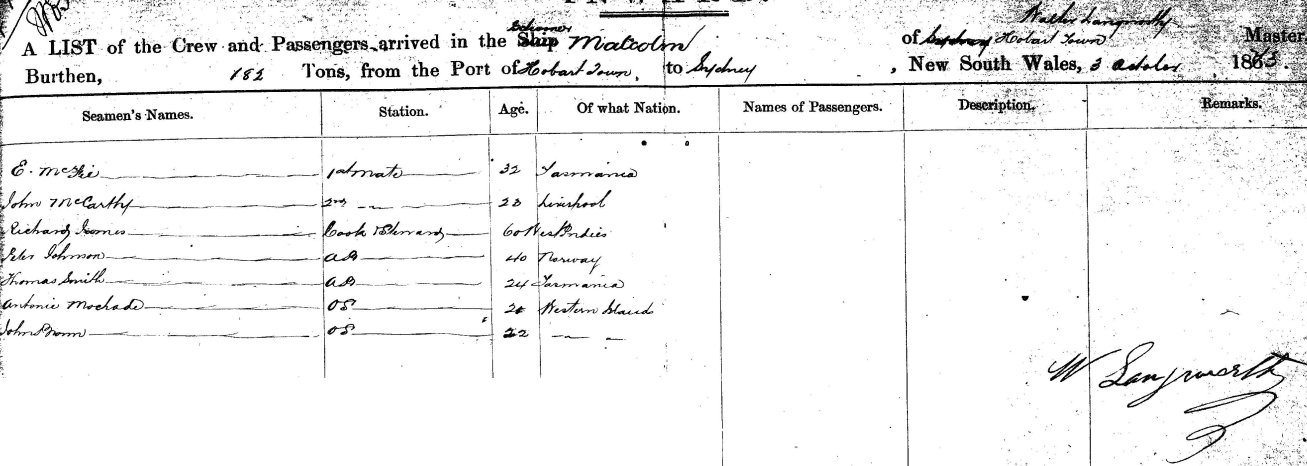 Walter Langworthy
A LIST of the Crew and Passengers arrived in the Ship Schooner Malcolm of Sydney Hobart Town Master
Burthen, 182 Tons, from the Port of Hobart Town, to Sydney, New South Wales, 3 October 1863
Seamen's Names. Station. Age. Of what Nation. Names of Passengers. Description. Remarks.
E. McFie 1st Mate 32 Tasmania
John McCarthy 2nd " 23 Liverpool
Richard James Cook & Steward 60 West Indies
Peter Johnson AB 40 Norway
Thomas Smith AB 24 Tasmania
Antonie Mochado OS 20 Western Islands
John Brown OS 22 " "
W Langworthy